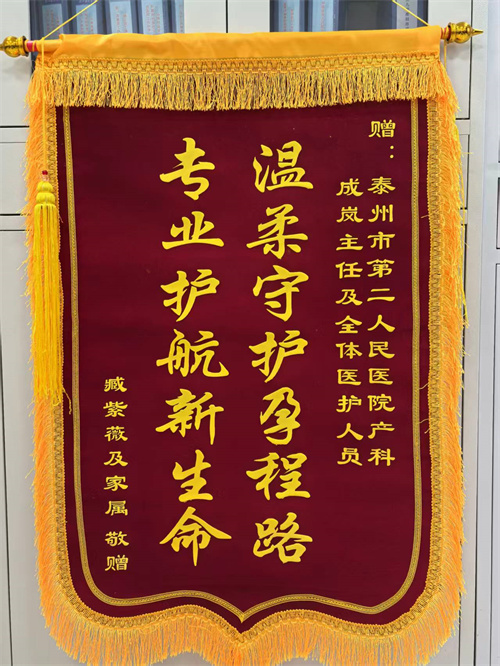 赠：泰州市第二人民医院产科
成岚主任及全体医护人员
温柔守护孕程路
专业护航新生命
臧紫薇及家属 敬赠